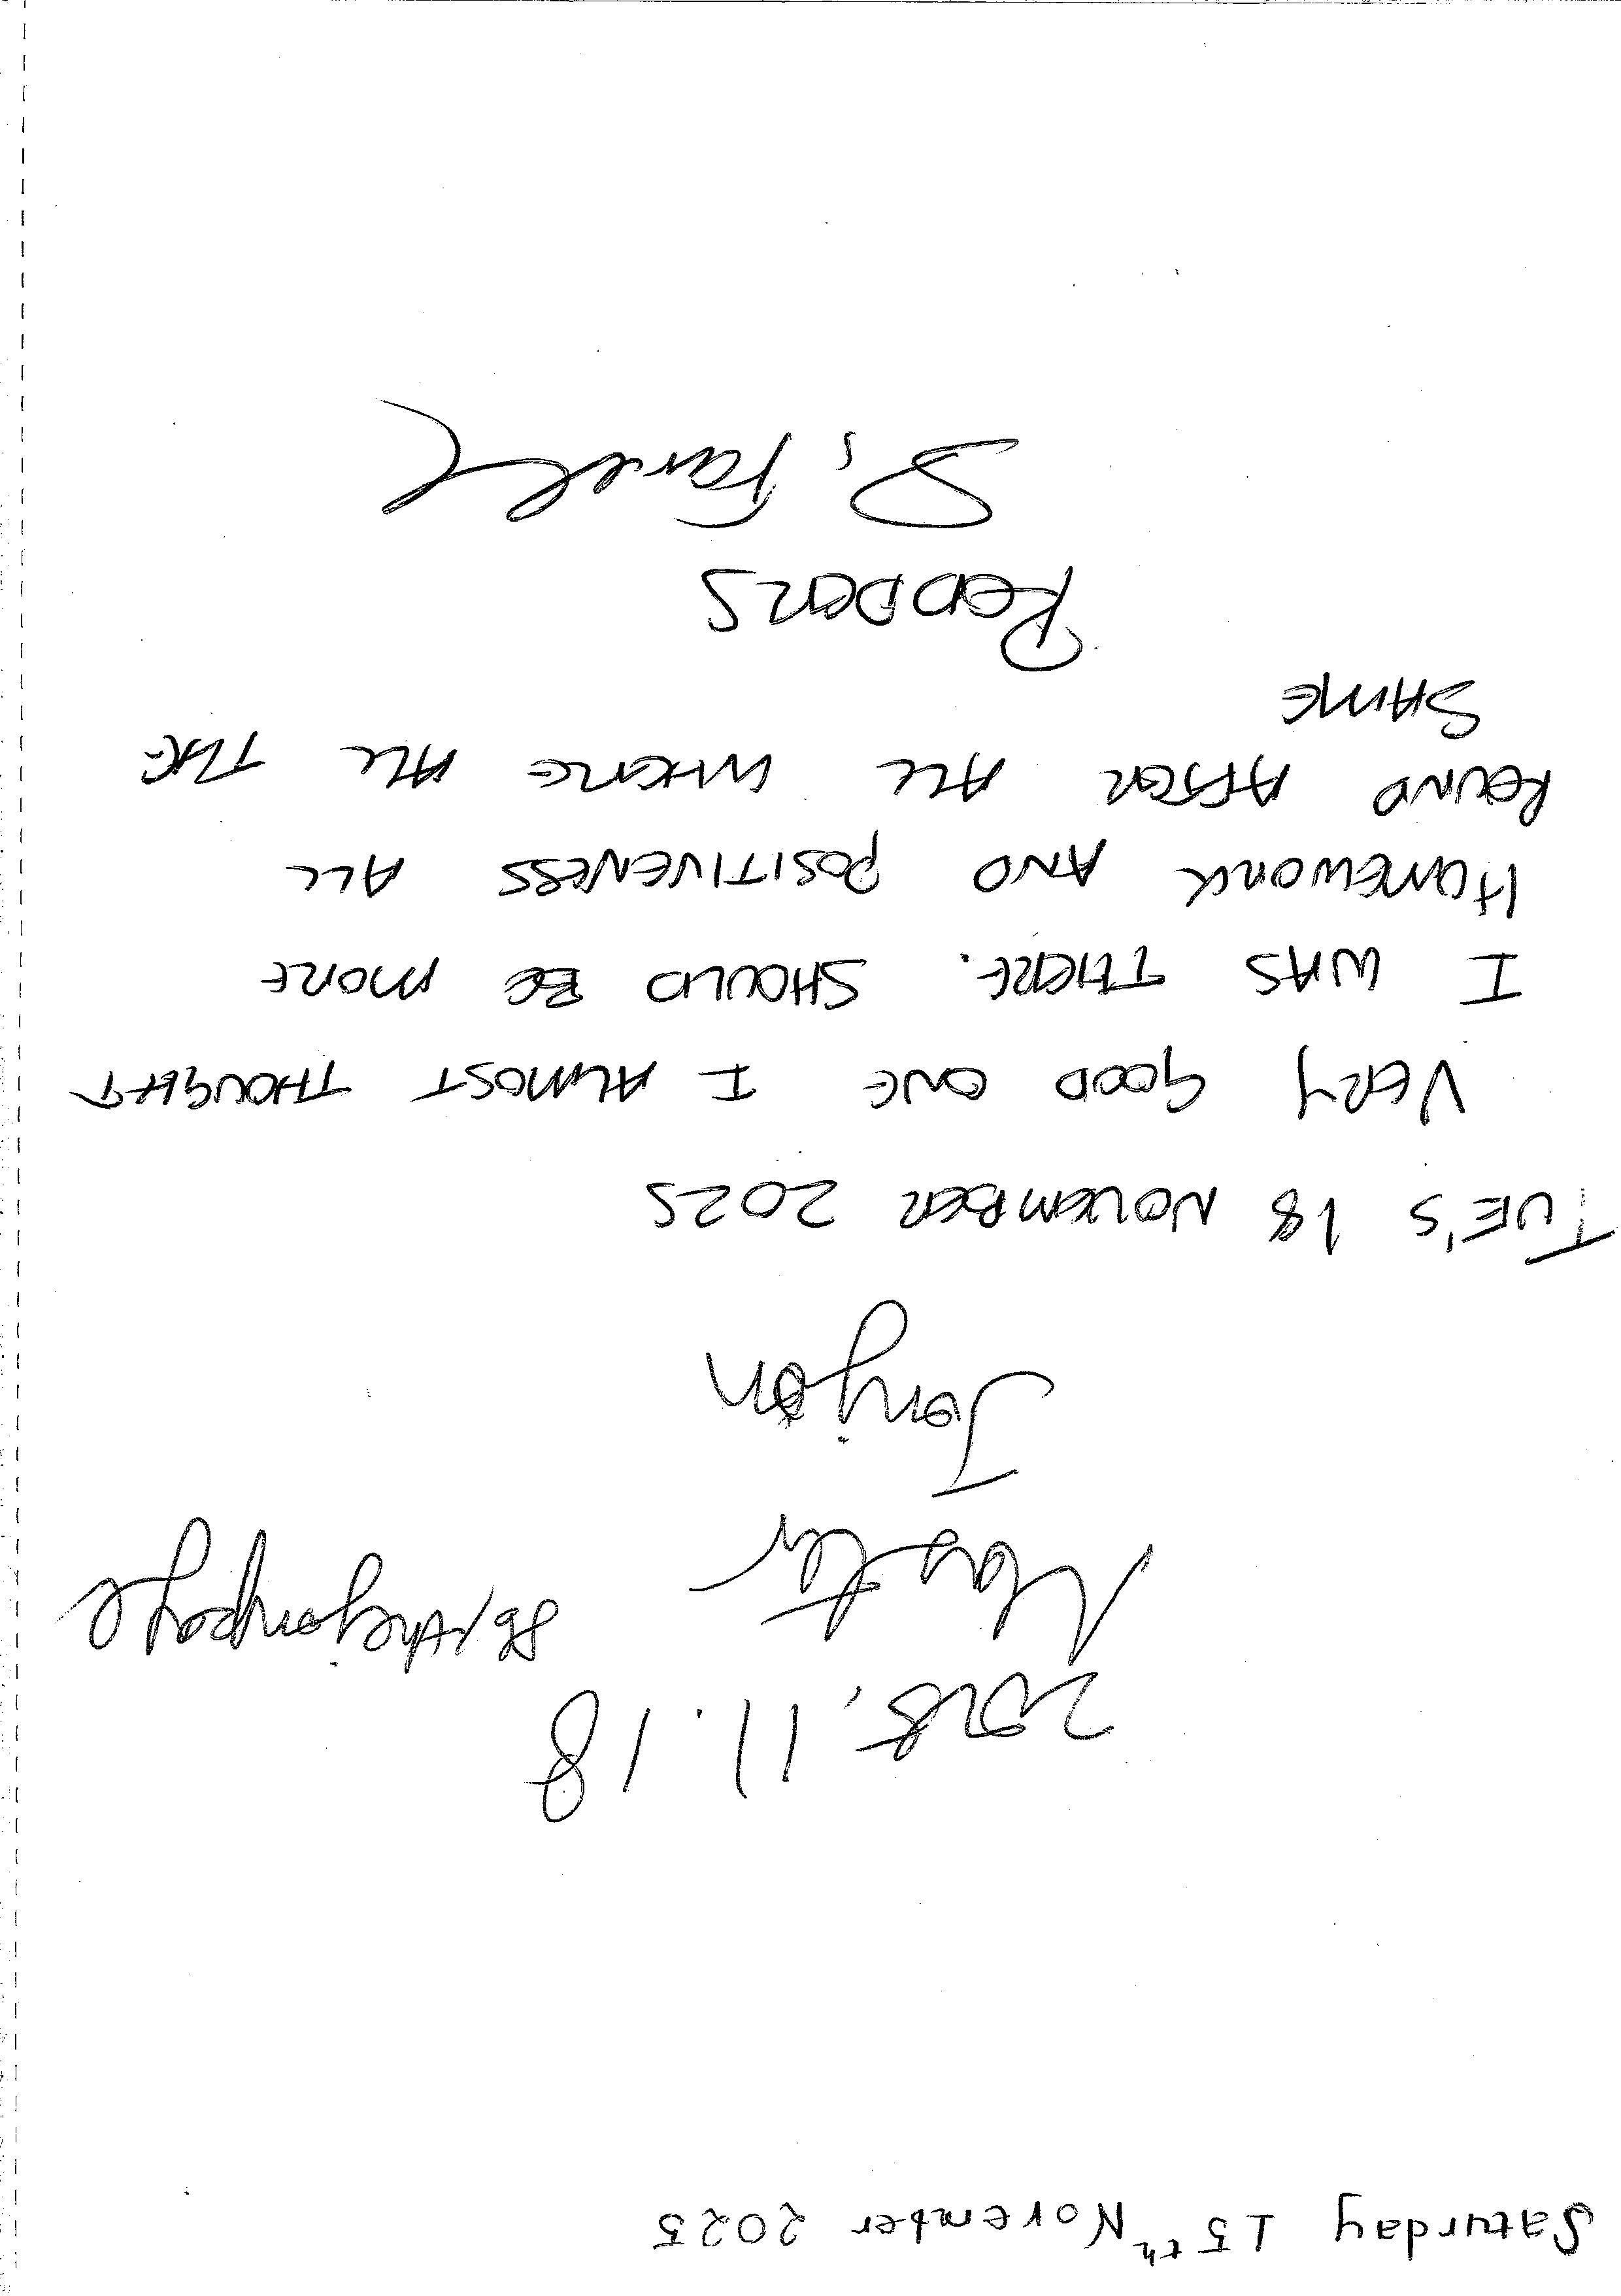 Saturday 15th November 2025
2025.11.18
Master
Tonyon
TUE'S 18 NOVEMBER 2025
VERY GOOD ONE I ALMOST THOUGHT
I WAS THERE. SHOULD BE MORE
HOMEWORK AND POSITIVENESS ALL
ROUND AFTER ALL WHERE ALL THE
SAME